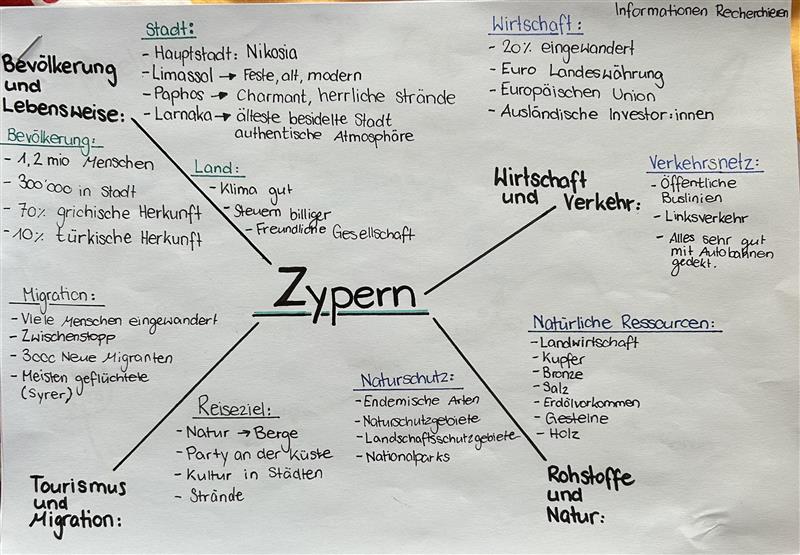 Informationen Recherchieren
Bevölkerung
und
Lebensweise:
Stadt:
- Hauptstadt: Nikosia
- Limassol → Feste, alt, modern
- Paphos → Charmant, herrliche strände
- Larnaka → älteste besidelte Stadt
authentische Atmosphäre
Bevölkerung:
- 1,2 mio Menschen
- 300'000 in Stadt
- 70% grichische Herkunft
- 10% türkische Herkunft
Land:
- Klima gut
- Steuern billiger
- Freundliche Gesellschaft
Wirtschaft:
- 20% eingewandert
- Euro Landeswährung
- Europäischen Union
- Ausländische Investor:innen
Wirtschaft
und Verkehr:
Verkehrsnetz:
- Öffentliche
Buslinien
- Linksverkehr
- Alles sehr gut
mit Autobahnen
gedekt.
Zypern
Migration:
- Viele Menschen eingewandert
- Zwischenstopp
- 3000 Neue Migranten
- Meisten geflüchtete
(Syrer)
Reiseziel:
- Natur → Berge
- Party an der Küste
- Kultur in Städten
- Strände
Tourismus
und
Migration:
Naturschutz:
- Endemische Arten
- Naturschutzgebiete
- Landschaftsschutzgebiete
- Nationalparks
Natürliche Ressourcen:
- Landwirtschaft
- Kupfer
- Bronze
- Salz
- Erdölvorkommen
- Gesteine
- Holz
Rohstoffe
und
Natur: